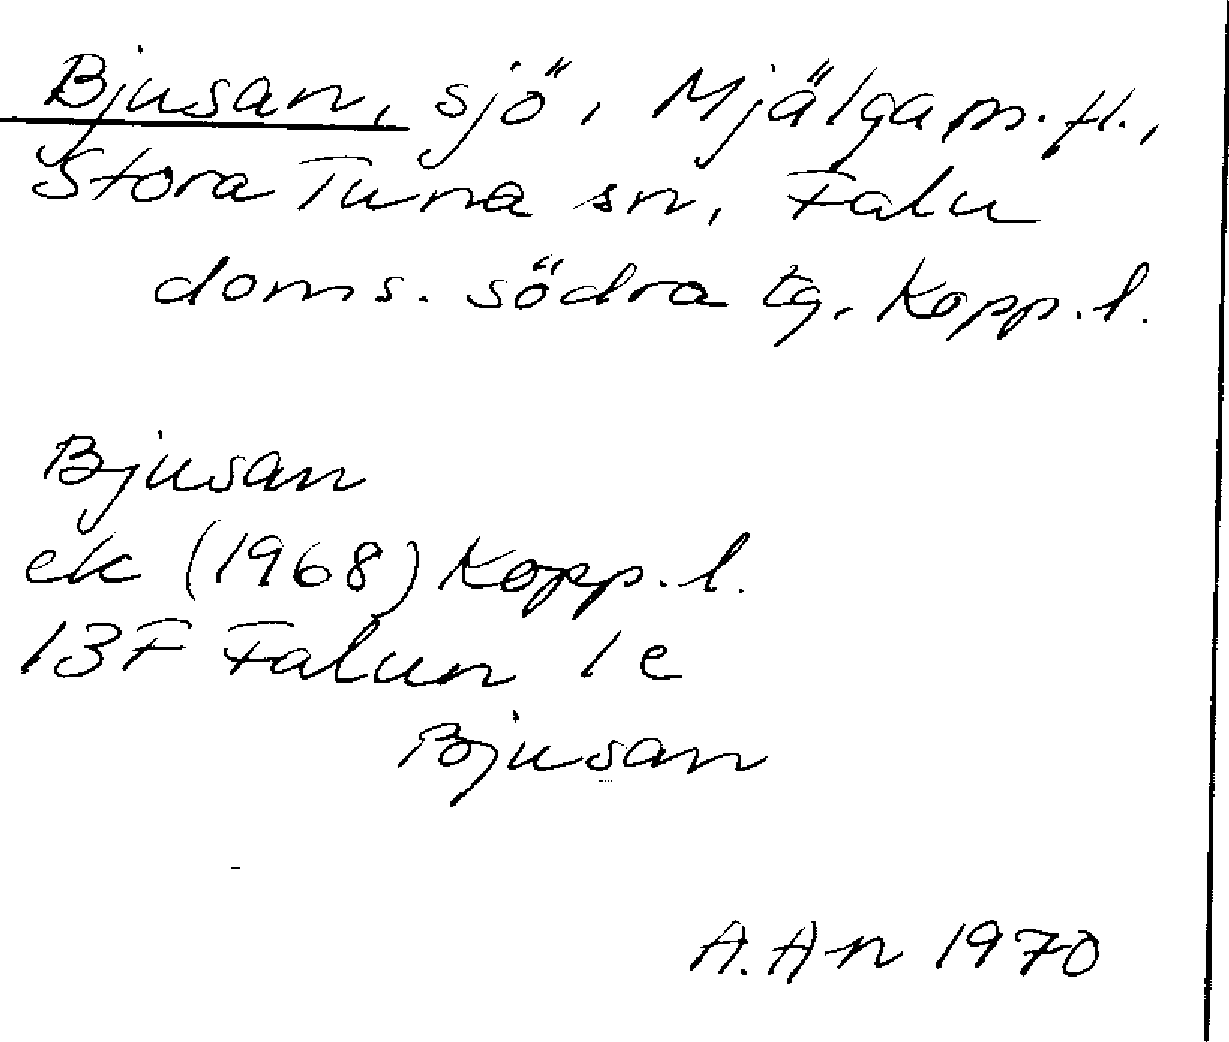 Bjusan, sjö, Mjälga m. fl.,
Stora Tuna sn, Falu
doms. södra tg. Kopp. l.
Bjusan
ek (1968) Kopp. l.
13F Falun 1e
Bjusan
A. An 1970